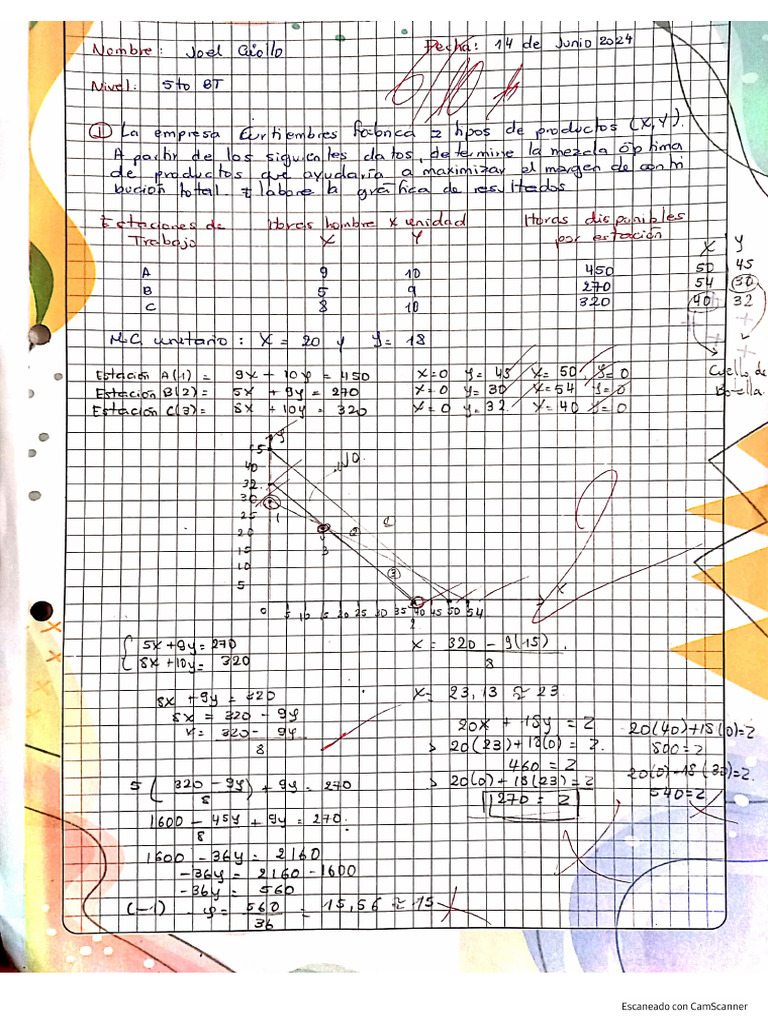 Nombre: Joel Criollo Fecha: 14 de Junio 2024
6/10
Nivel: 5to BT
① La empresa Curtiembres fabrica 2 tipos de productos (X,Y).
A partir de los siguientes datos, determine la mezcla óptima
de productos que ayudaría a maximizar el margen de contri
bución total. Elabore la gráfica de resultados
Estaciones de Trabajo Horas hombre x unidad Horas disponibles por estación
X Y X Y
A 9 10 450 50 45
B 5 9 270 54 30
C 8 10 320 40 32
M.C unitario: X = 20 y Y= 18
Cuello de Botella
Estación A(1) = 9x + 10y = 450 X=0 y= 45 X= 50 y=0
Estación B(2) = 5x + 9y = 270 X=0 y= 30 X=54 y=0
Estación C(3)= 8x + 10y = 320 X=0 y= 32 X= 40 y=0
y
45
40
32
30
25
20
15
10
5
1
3
2
3
x
0 5 10 15 20 25 30 35 40 45 50 54
2
5x+9y=270
8x+10y= 320
8x +9y = 320
8x = 320 - 9y
x= 320 - 9y
8
5 ( 320 - 9y ) + 9y = 270
8
1600 - 45y + 9y = 270
8
1600 - 36y = 2160
-36y = 2160 - 1600
-36y = 560
(-1) - y= 560 = 15,56 ≈ 15
36
x = 320 - 9(15)
8
x= 23,13 ≈ 23
20x + 18y = Z
20(23)+18(0) = Z
460 = Z
20(0)+18(23)=Z
1270 = Z
20(40)+18(0)=Z
800=Z
20(0)-18(30)=Z
540=Z
Escaneado con CamScanner